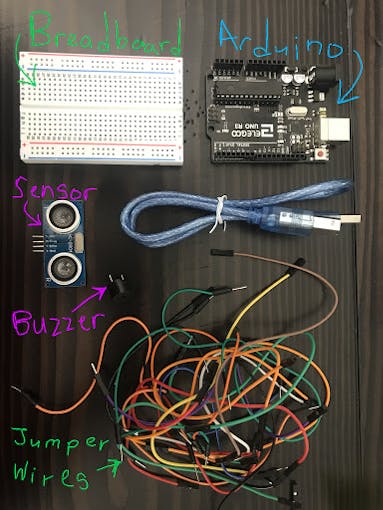 Breadboard
Arduino
ELEGOO
UNO R3
Sensor
Buzzer
Jumper
Wires